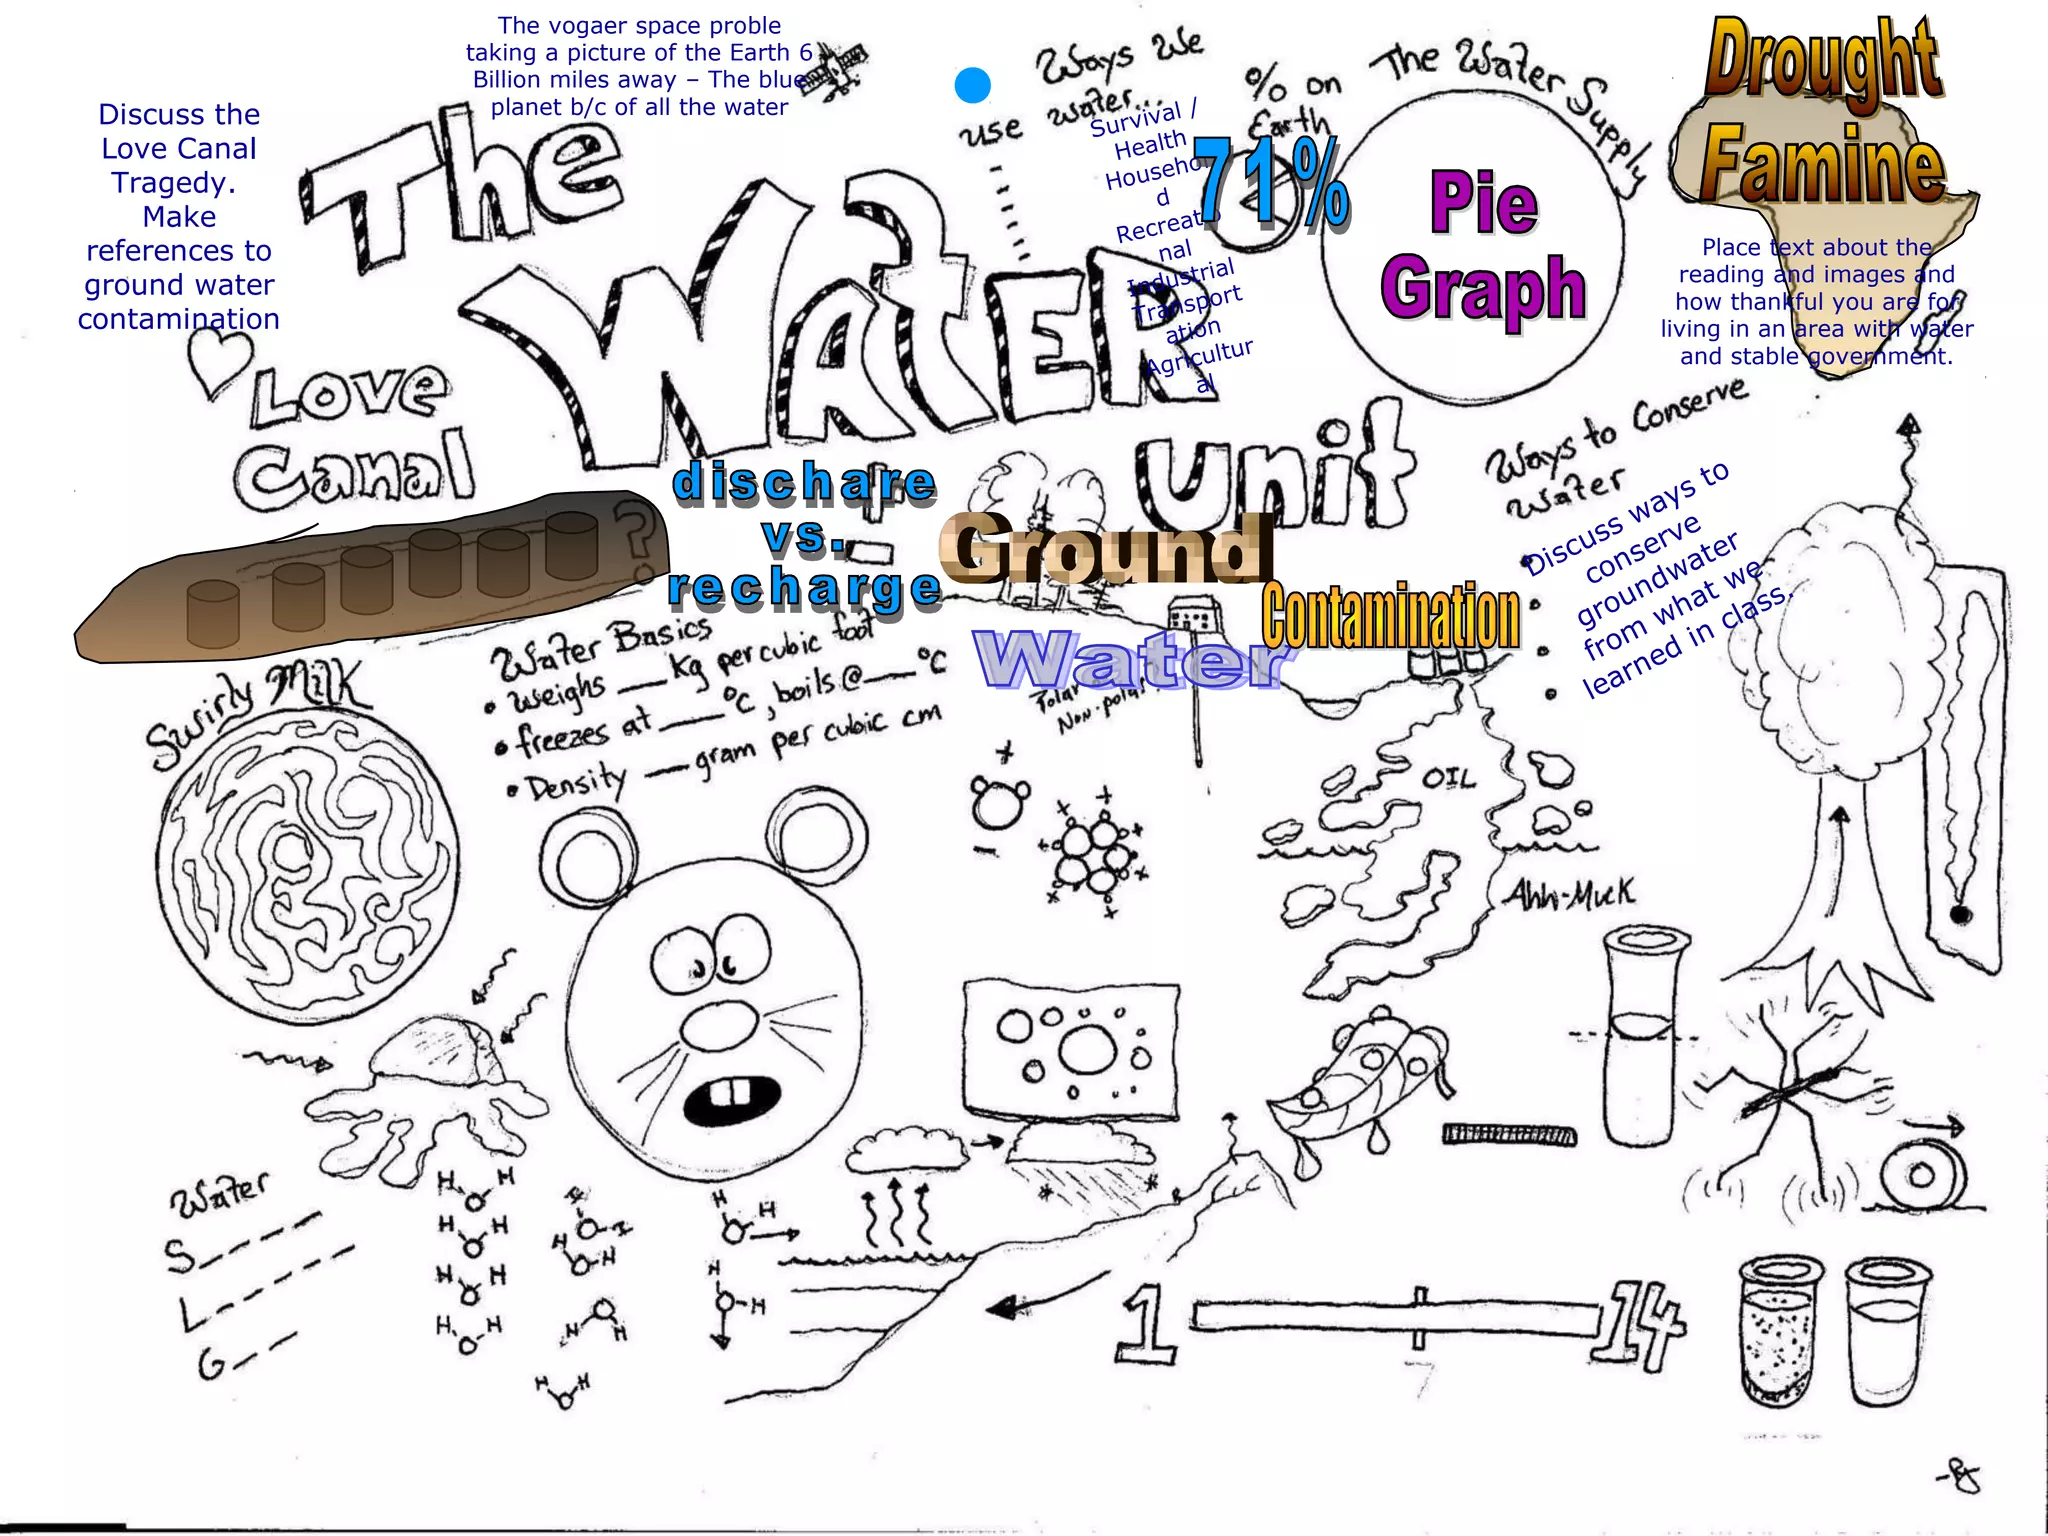 The vogaer space proble
taking a picture of the Earth 6
Billion miles away – The blue
planet b/c of all the water
Discuss the
Love Canal
Tragedy.
Make
references to
ground water
contamination
The
Water
Unit
Ways We
use water...
Survival /
Health
Househol
d
Recreatio
nal
Industrial
Transport
ation
Agricultur
al
% on
Earth
71%
The Water Supply
Pie
Graph
Drought
Famine
Place text about the
reading and images and
how thankful you are for
living in an area with water
and stable government.
Love
Canal
?
dischare
vs.
recharge
Ground
Water
Contamination
Ways to Conserve
Water
Discuss ways to
conserve
groundwater
from what we
learned in class.
Water Basics
• weighs __ Kg per cubic foot
• freezes at ___ °C, boils @ ___ °C
• Density __ gram per cubic cm
Swirly Milk
Polar
Non-polar
+
-
OIL
Ahh-Muck
Water
S_ _ _ _ _
L_ _ _ _ _
G_ _ _
H H
H H
H H
H H
H
H H
H H
H H
H H
H
H
1 14
7